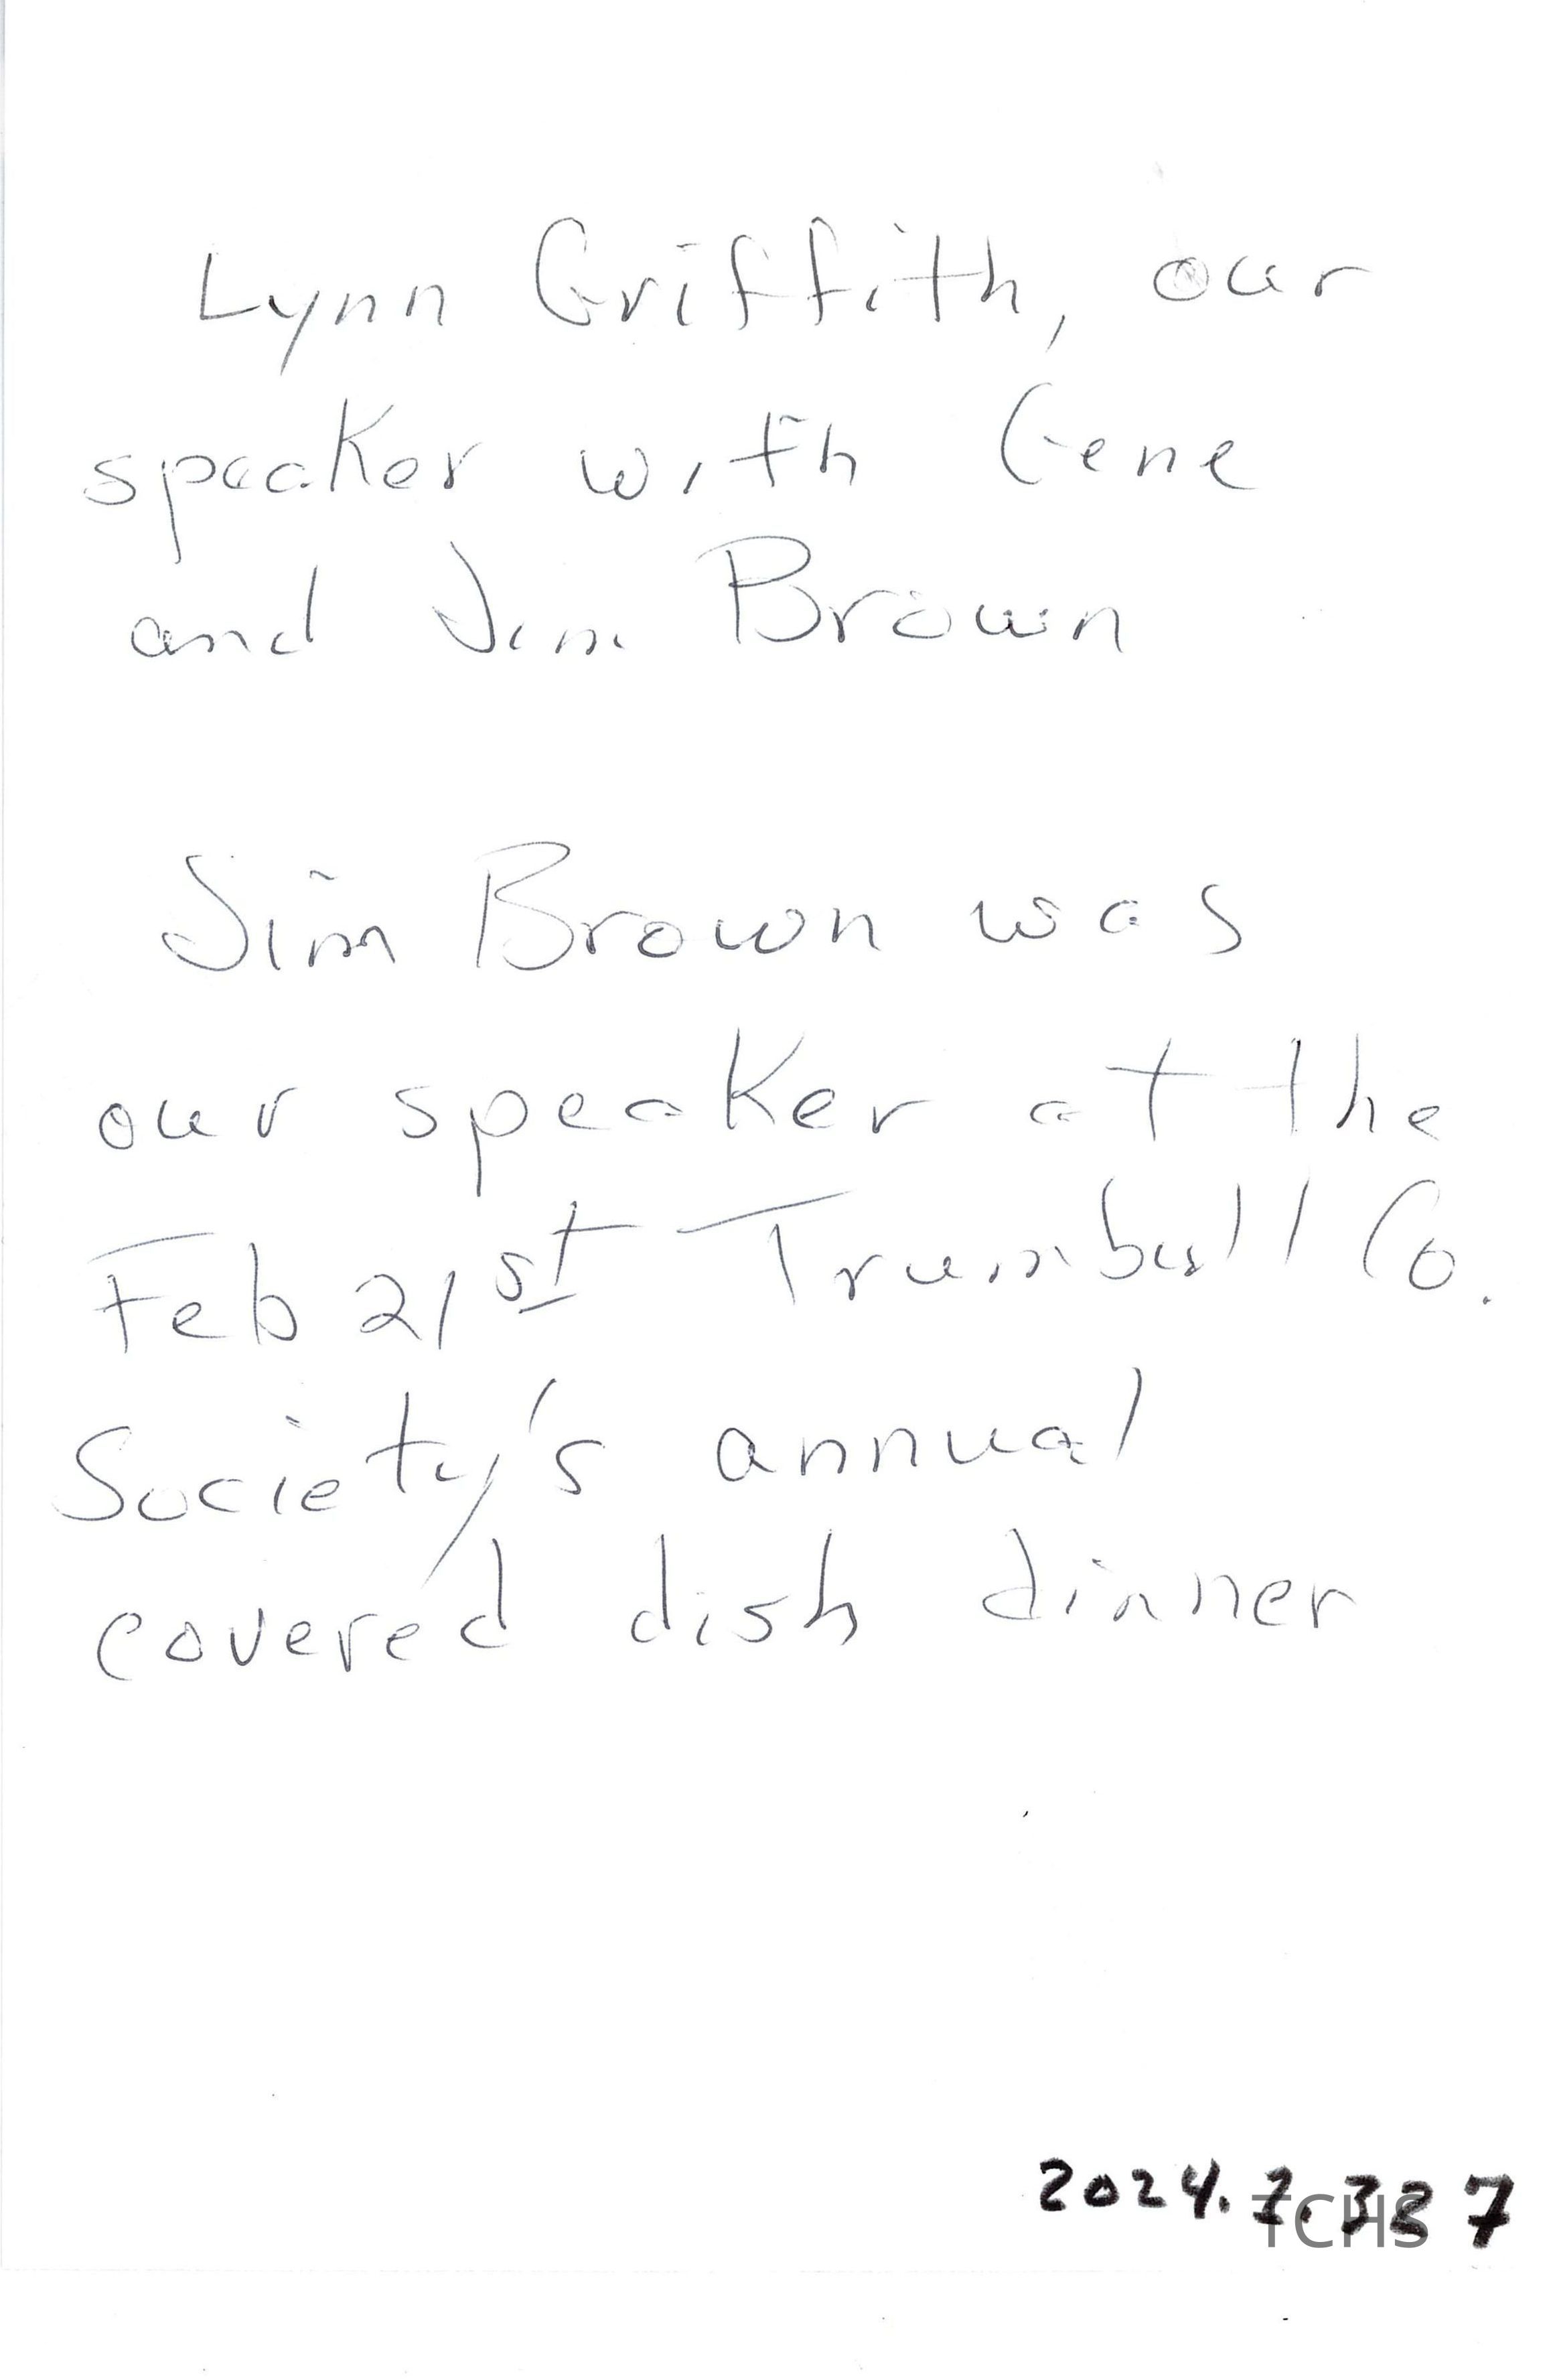 Lynn Griffith, our
speaker with Gene
and Jim Brown
Jim Brown was
our speaker at the
Feb 21st Trumbull Co.
Society's annual
covered dish dinner
TCHS